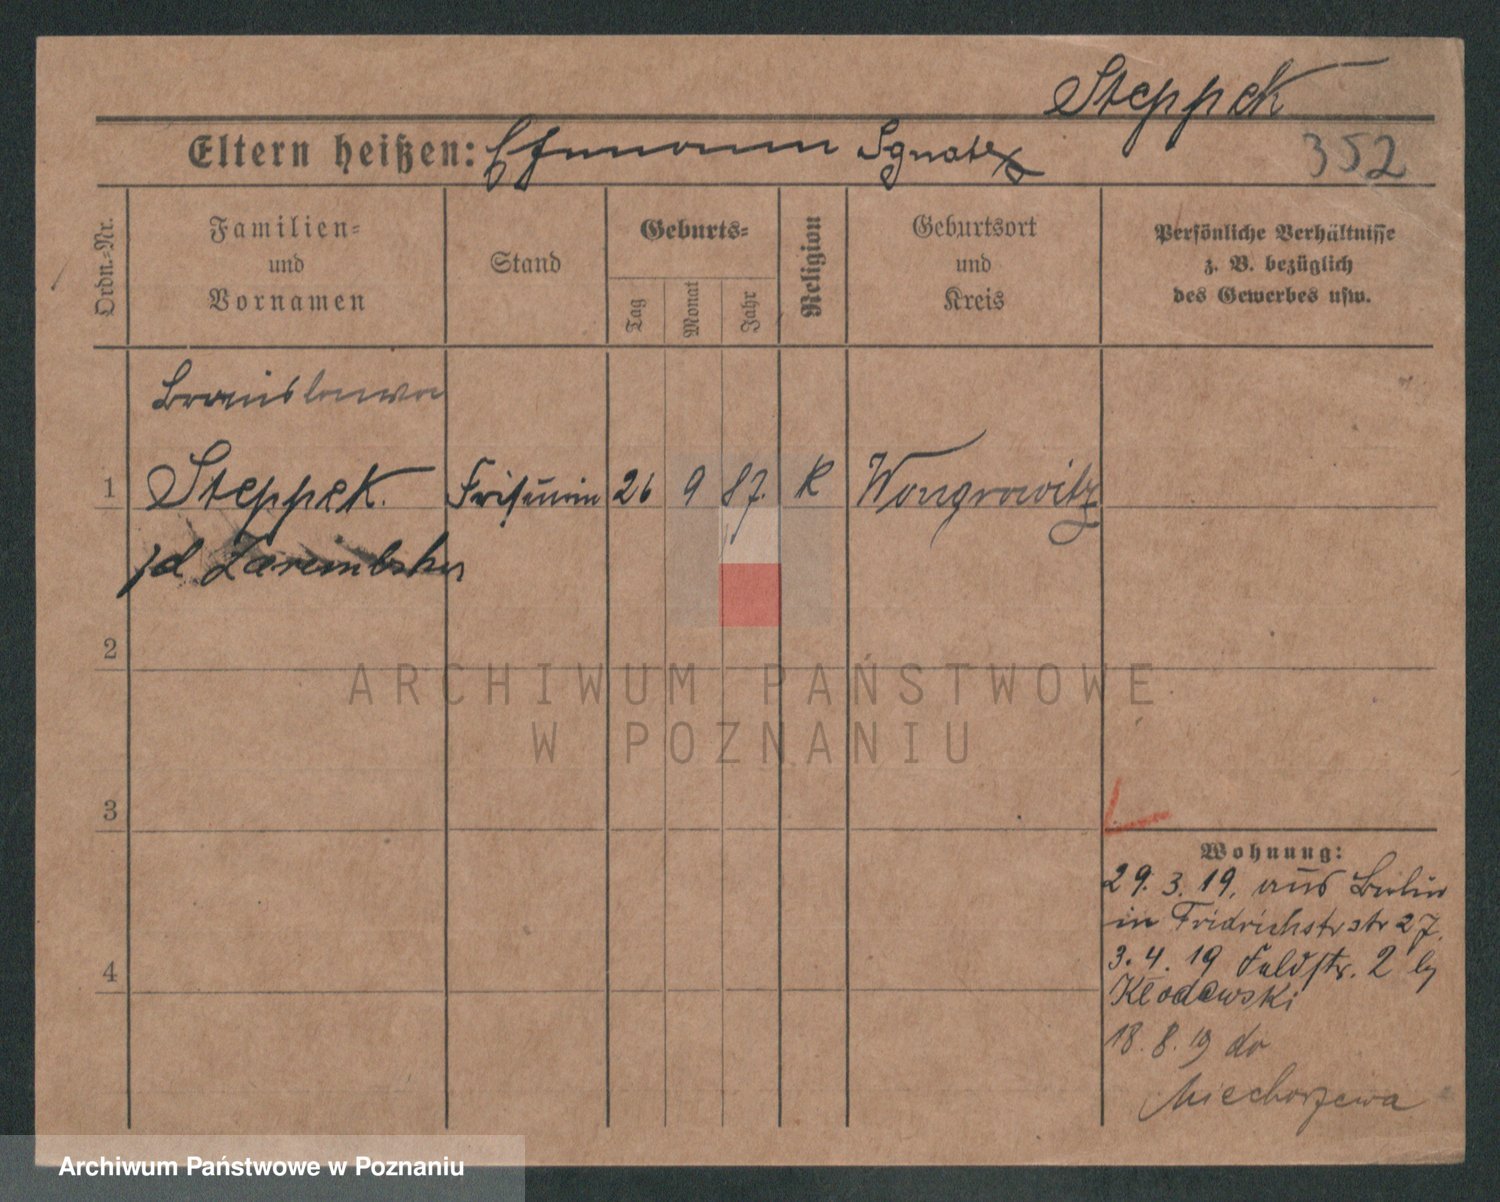 Steppek
Eltern heißen: Ignatz
352
Ordn.-Nr.
Familien-
und
Vornamen
Stand
Geburts-
Tag
Monat
Jahr
Religion
Geburtsort
und
Kreis
Persönliche Verhältnisse
z. B. bezüglich
des Gewerbes usw.
Bronislawa
1 Steppek. Friseurin 26 9 87. K Wongrowitz
2
3
4
Wohnung:
29. 3. 19. aus Berlin
in Fridrichstrstr 27.
3. 4. 19 Feldstr. 2 by
Klodowski
18. 8. 19 do
Miechorzewa
ARCHIWUM PAŃSTWOWE
W POZNANIU
Archiwum Państwowe w Poznaniu